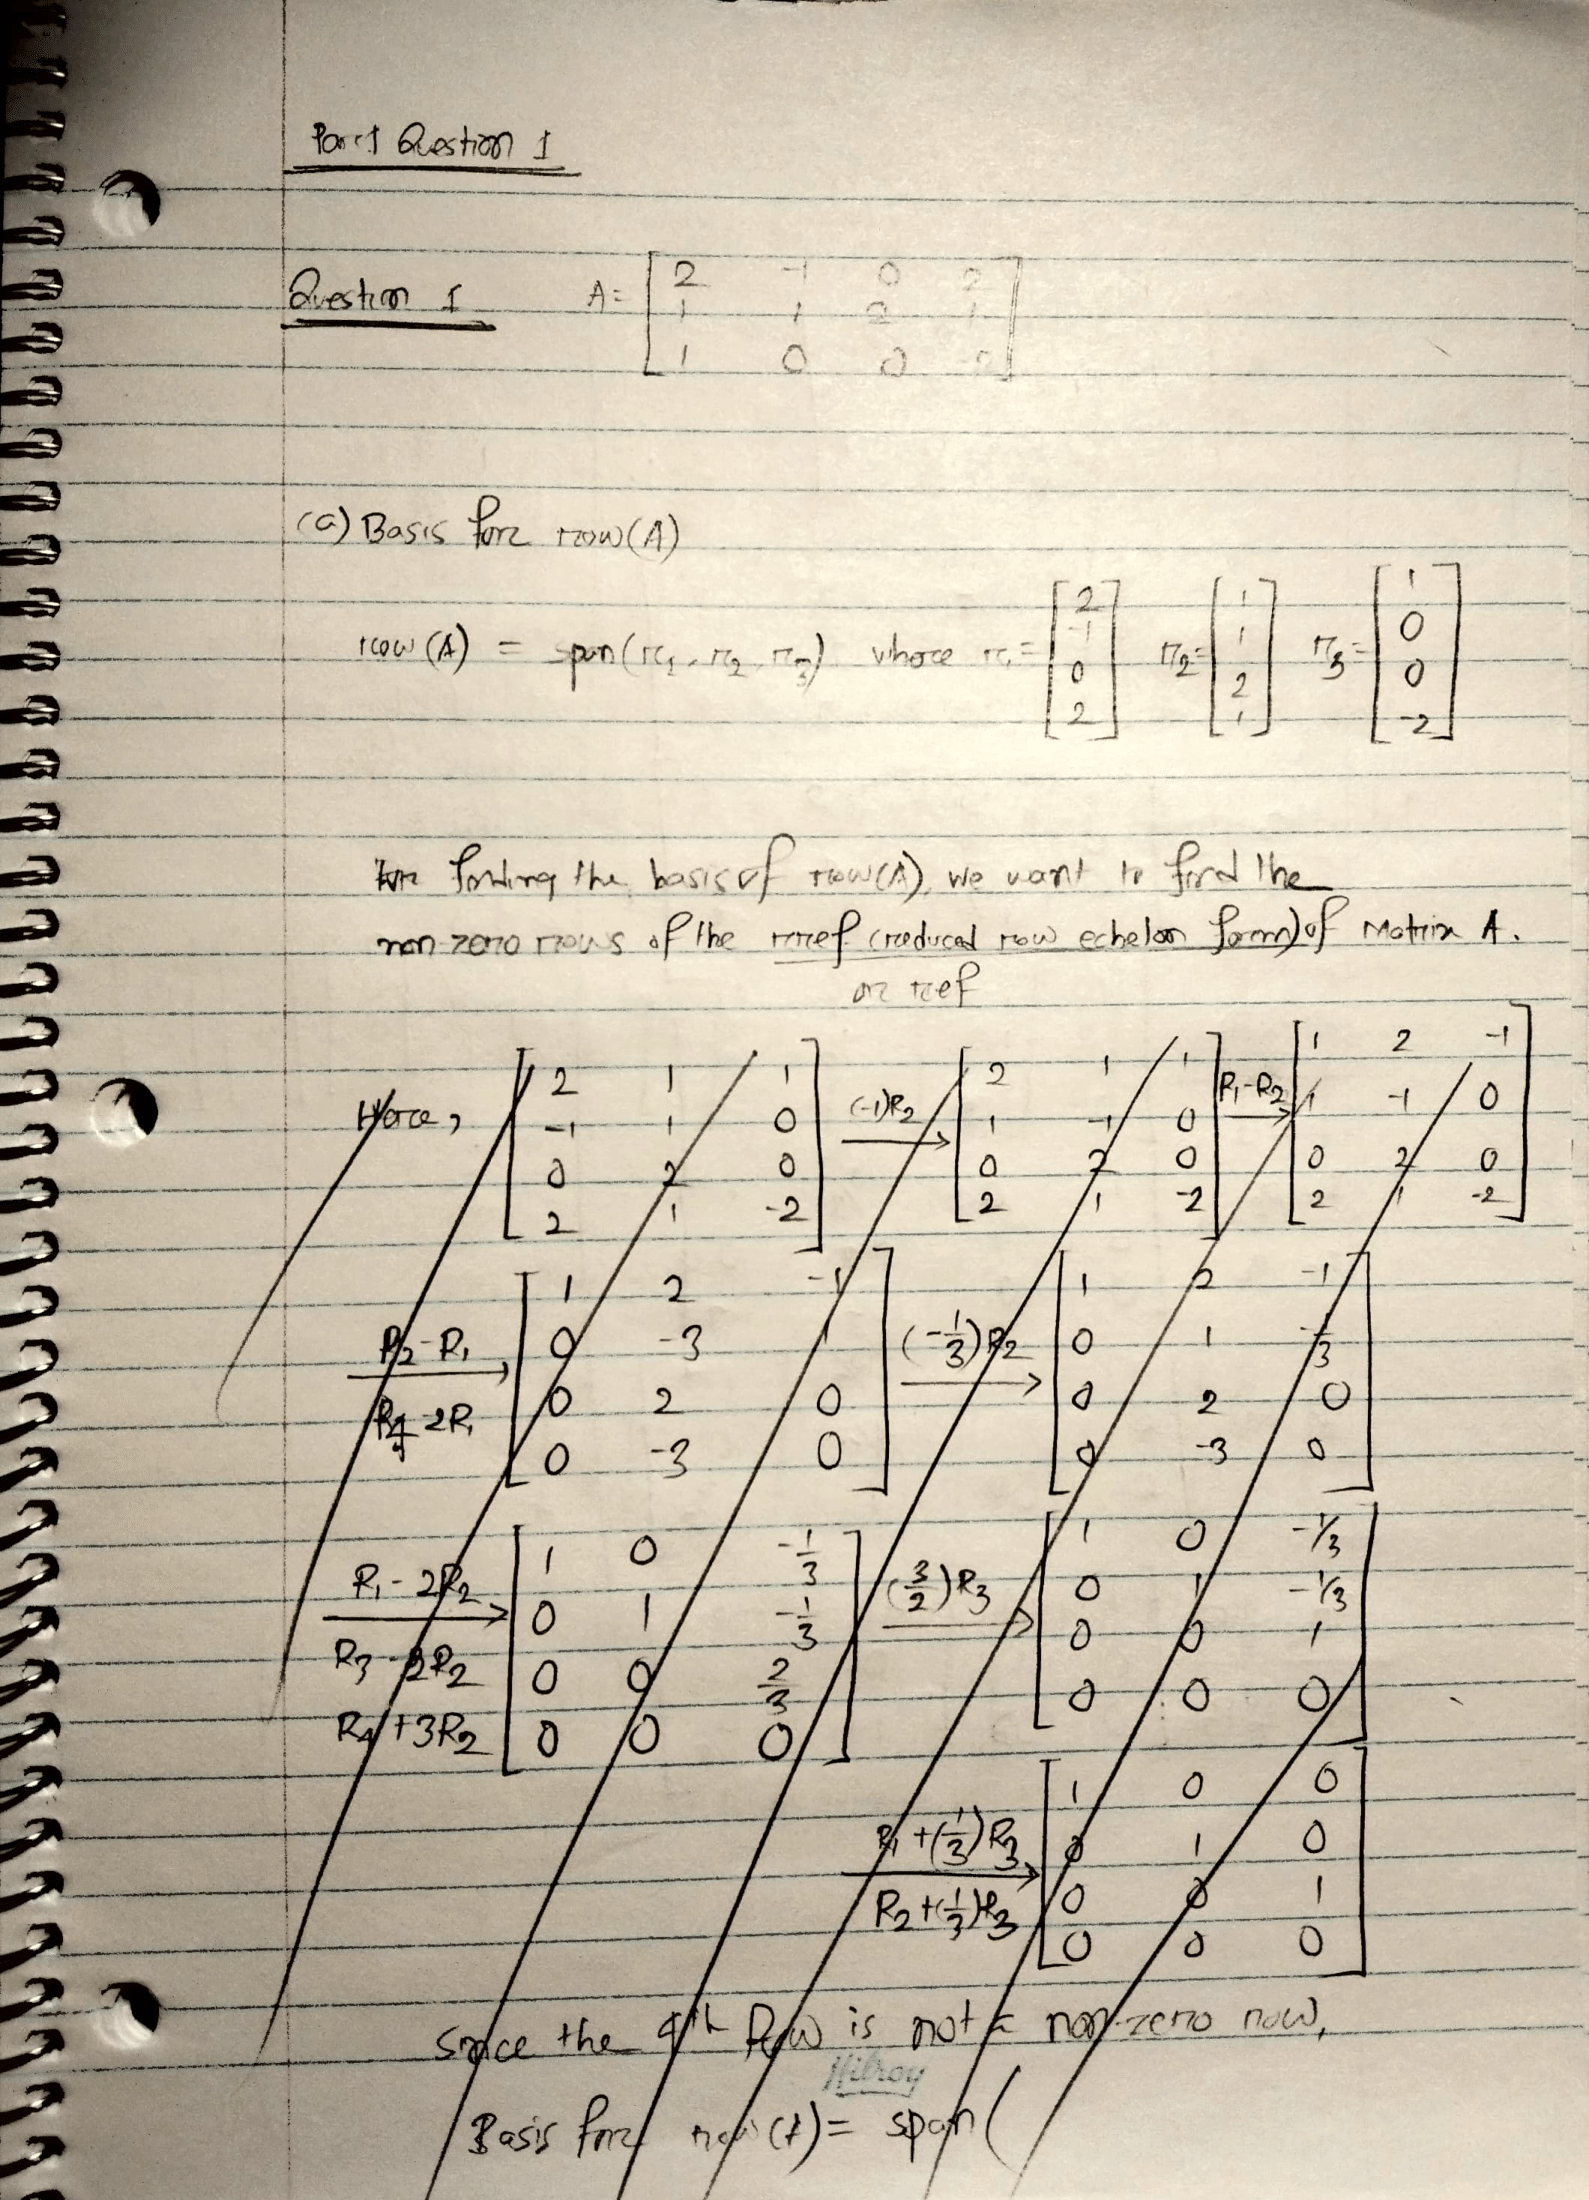 Part Question 1
Question 1 A = [2 -1 0 2
1 1 2 1
1 0 0 -2]
(a) Basis for row(A)
row (A) = span(r1, r2, r3) where r1 = [2 -1 0 2] r2 = [1 1 2 1] r3 = [1 0 0 -2]
For finding the basis of row(A), we want to find the
non-zero rows of the rref (reduced row echelon form) of Matrix A.
or ref
Here, [2 1 1
-1 1 0
0 2 0
2 1 -2] (-1)R2 → [2 1 1
1 -1 0
0 2 0
2 1 -2] R1-R2 → [1 2 -1
1 -1 0
0 2 0
2 1 -2]
R2-R1
R4-2R1 → [1 2 -1
0 -3 1
0 2 0
0 -3 0] (-1/3)R2 → [1 2 -1
0 1 -1/3
0 2 0
0 -3 0]
R1-2R2
R3-2R2
R4+3R2 → [1 0 -1/3
0 1 -1/3
0 0 2/3
0 0 0] (3/2)R3 → [1 0 -1/3
0 1 -1/3
0 0 1
0 0 0]
R1+(1/3)R3
R2+(1/3)R3 → [1 0 0
0 1 0
0 0 1
0 0 0]
Since the 4th Row is not a non-zero row,
Hilroy
Basis for row(A) = span(